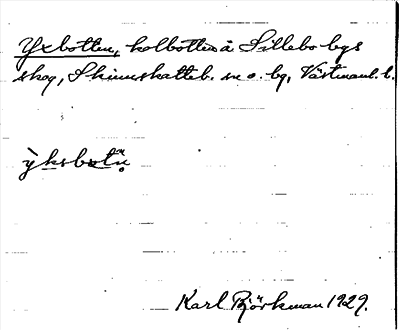 Yxbotten, kolbotten å Sillebo bys
skog, Skinnskatteb. sn o. bg, Västmanl. l.
Karl Björkman 1929.